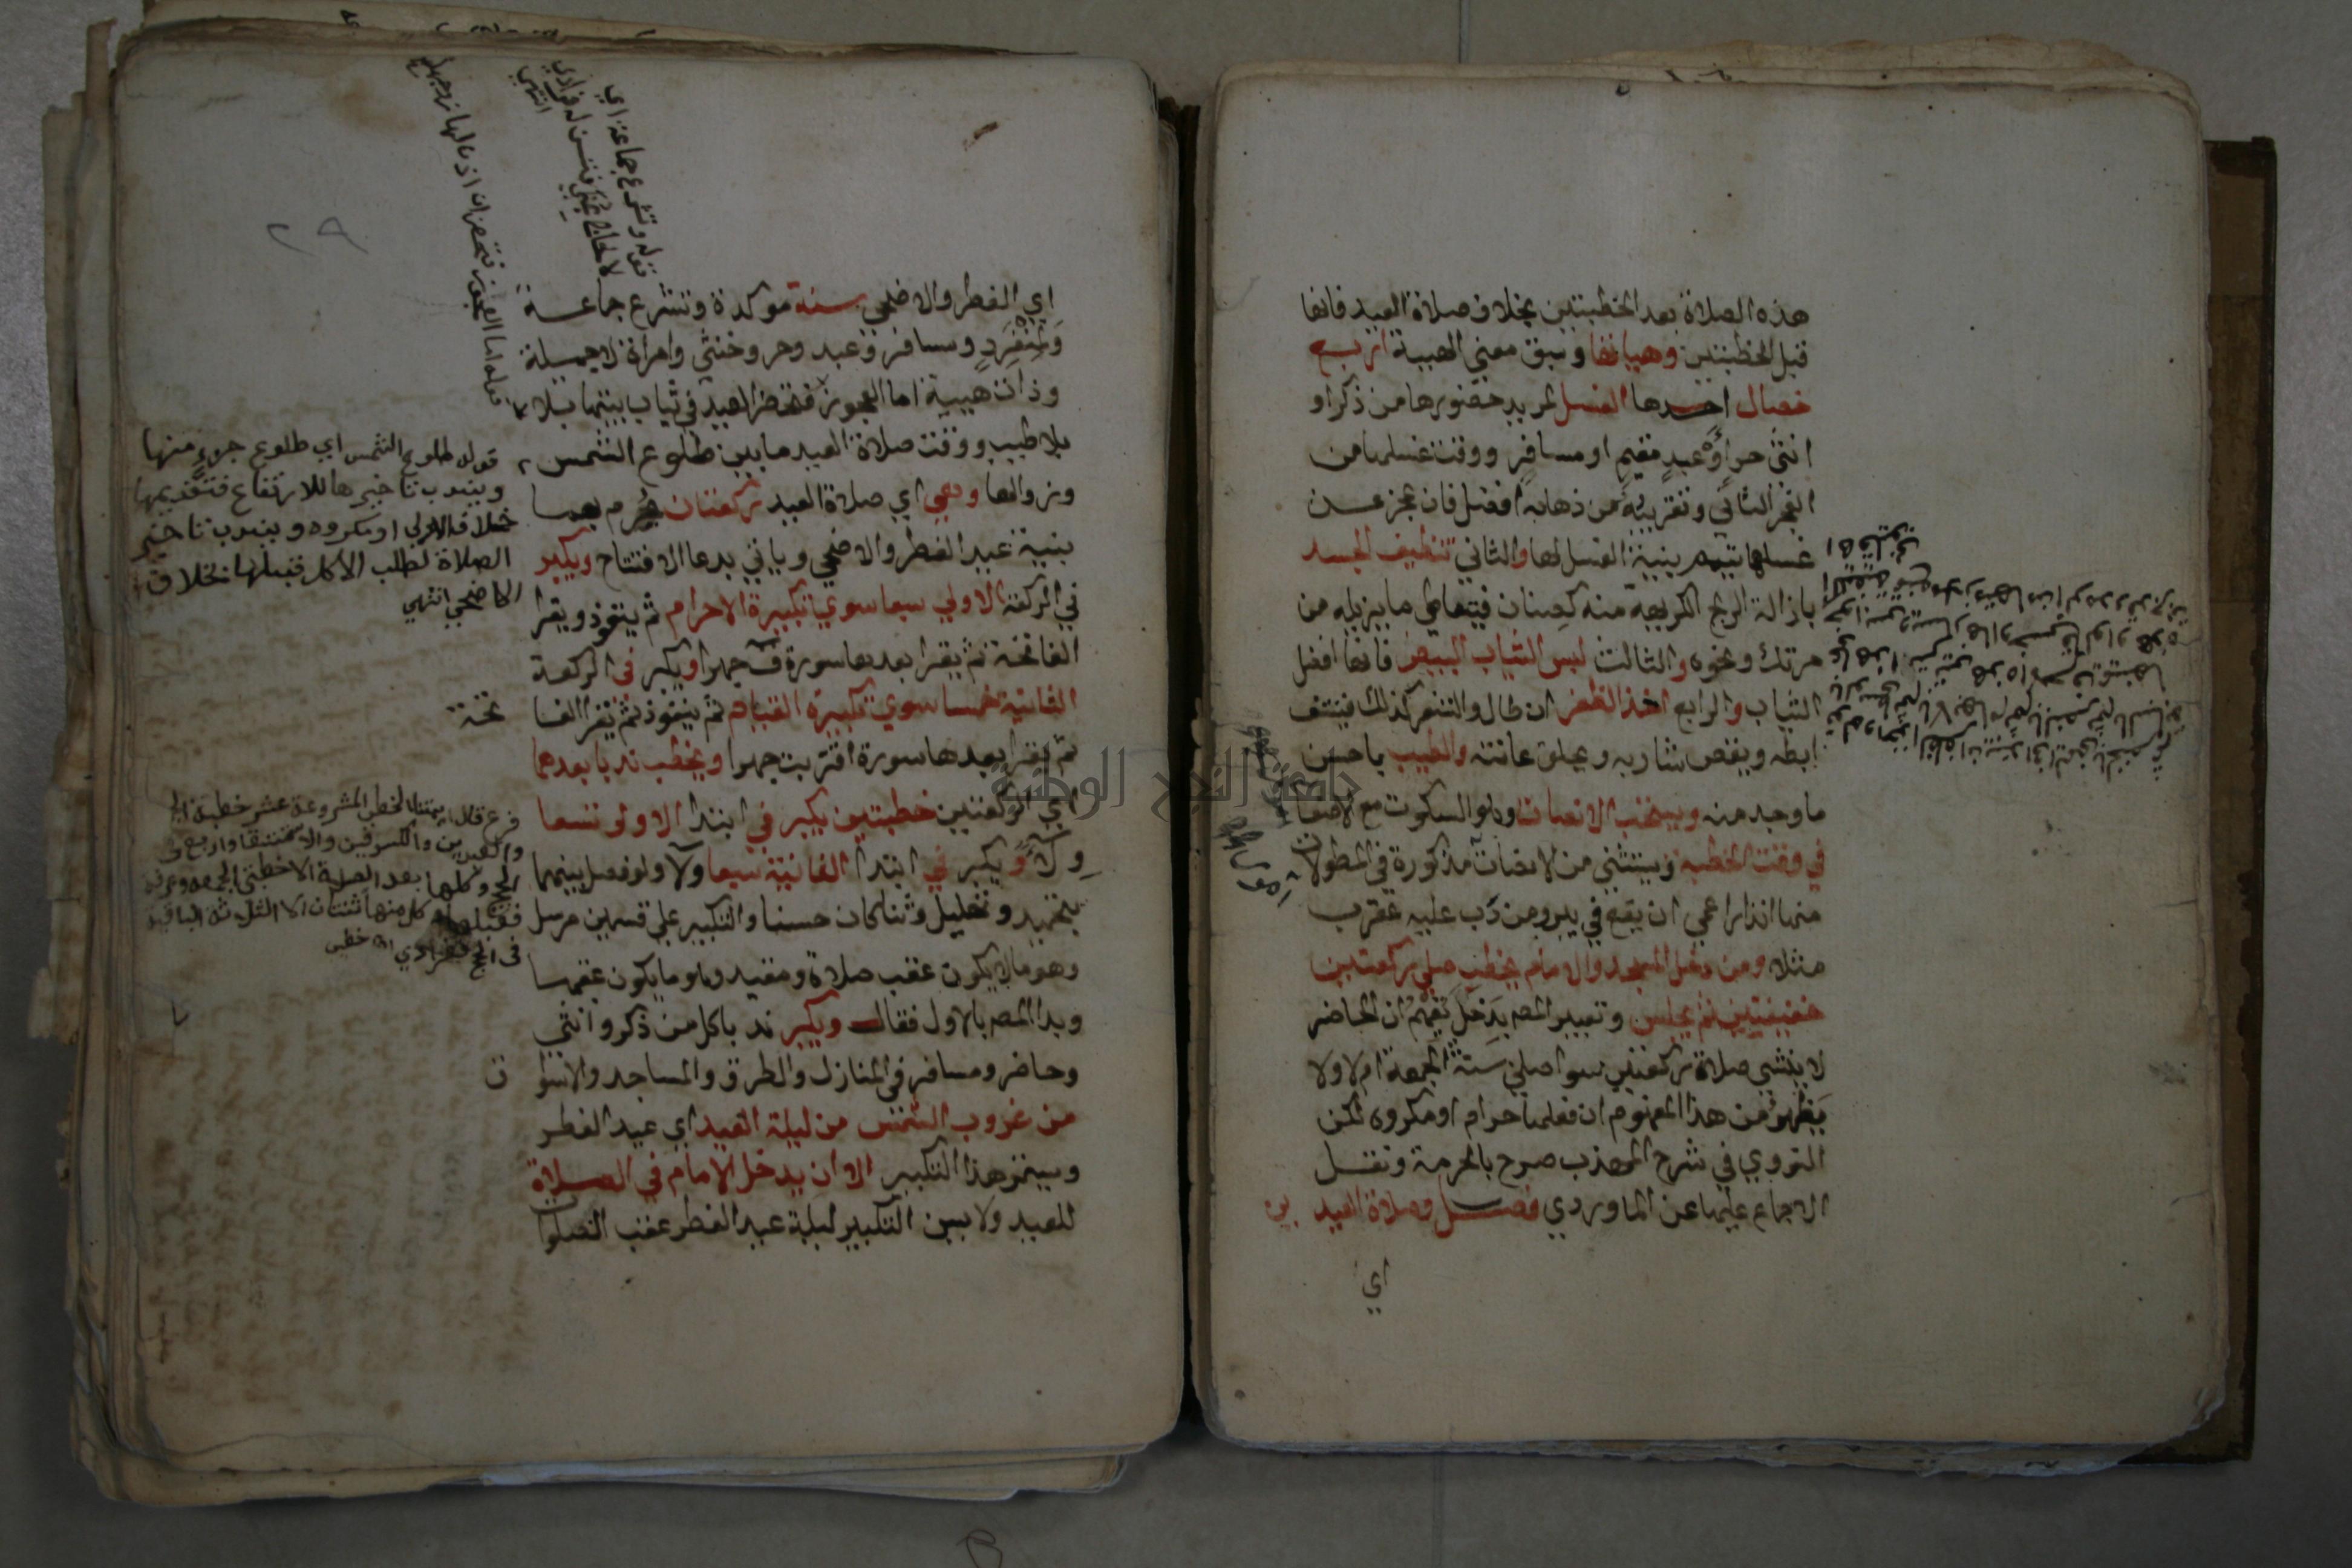 هذه الصلاة بعد الخطبتين بخلاف صلاة العيد فانها
قبل الخطبتين وهياتها وسبق معنى الهيية اربع
خصال احدها الغسل لمريد حضورها من ذكر او
انثى حر او عبد مقيم او مسافر ووقت غسلها من
الفجر الثاني وتقريبه من ذهابه افضل فان عجز عن
غسلها تيمم بنية الغسل لها والثاني تنظيف الجسد
بازالة الريح الكريهة منه كصنان فيتعاطى ما يزيله من
مرتك ونحوه والثالث لبس الثياب البيض فانها افضل
الثياب والرابع اخذ الظفر ان طال والشعر كذلك فينتف
ابطه ويقص شاربه ويحلق عانته والطيب باحسن
ما وجد منه ويستحب الانصات وهو السكوت مع الاصغا
في وقت الخطبة ويستثنى من الانصات مذكورة في المطولات
منها انذار اعمى ان يقع في بير ومن دب عليه عقرب
مثلا ومن دخل المسجد والامام يخطب صلى ركعتين
خفيفتين ثم يجلس وتعبير المصـ بدخل يفهم ان الحاضر
لا ينشى صلاة ركعتين سوا صلى سنة الجمعة ام لا ولا
يظهر من هذا المفهوم ان فعلها حرام او مكروه لكن
النووي في شرح المهذب صرح بالحرمة ونقل
الاجماع عليها عن الماوردي فصل وصلاة العيدين
اي
٢٩
اي الفطر والاضحى سنة موكدة وتشرع جماعة
ولمنفرد ومسافر وعبد وحر وخنثى وامراة لا جميلة
وذات هيية اما العجوز فتحضر العيد في ثياب بيتها بلا
بلا طيب ووقت صلاة العيد ما بين طلوع الشمس
وزوالها وهي اي صلاة العيد ركعتان يحرم بهما
بنية عيد الفطر والاضحى وياتي بدعا الافتتاح ويكبر
في الركعة الاولى سبعا سوى تكبيرة الاحرام ثم يتعوذ ويقرا
الفاتحة ثم يقرا بعدها سورة ق جهرا ويكبر في الركعة
الثانية خمسا سوى تكبيرة القيام ثم يتعوذ ثم يقرا الفا
تحة
ثم يقرا بعدها سورة اقتربت جهرا ويخطب ندبا بعدهما
اي الركعتين خطبتين يكبر في ابتدا الاولى تسعا
ولآ ويكبر في ابتدا الثانية سبعا ولآ ولو فصل بينهما
بتحميد وتهليل وثنا كان حسنا والتكبير على قسمين مرسل
وهو ما لا يكون عقب صلاة ومقيد وهو ما يكون عقبها
وبدا المصـ بالاول فقال ويكبر ندبا كل من ذكر وانثى
وحاضر ومسافر في المنازل والطرق والمساجد والاسوا
ق
من غروب الشمس من ليلة العيد اي عيد الفطر
ويستمر هذا التكبير الا ان يدخل الامام في الصلاة
للعيد ولا يسن التكبير ليلة عيد الفطر عقب الصلوات
قوله وتشرع جماعة اي
لا لحاج
فتسن له فرادى
انتهى
قوله اما العجوز فتحضر ان اذن لها زوجها
قوله طلوع الشمس اي طلوع جزء منها
ويندب تاخيرها للارتفاع فتقديمها
خلاف الاولى او مكروه ويندب تاخير
الصلاة لطلب الاكل قبلها بخلاف
الاضحى انتهى
فرع قال الخطب المشروعة عشر خطبة الجـ
والعيدين والكسوفين والاستسقا واربع في
الحج وكلها بعد الصلاة الا خطبتي الجمعة وعرفة
فقبلها وكل منها ثنتان الا الثلاثة الباقية
في الحج ففرادى
جامعة النجاح الوطنية